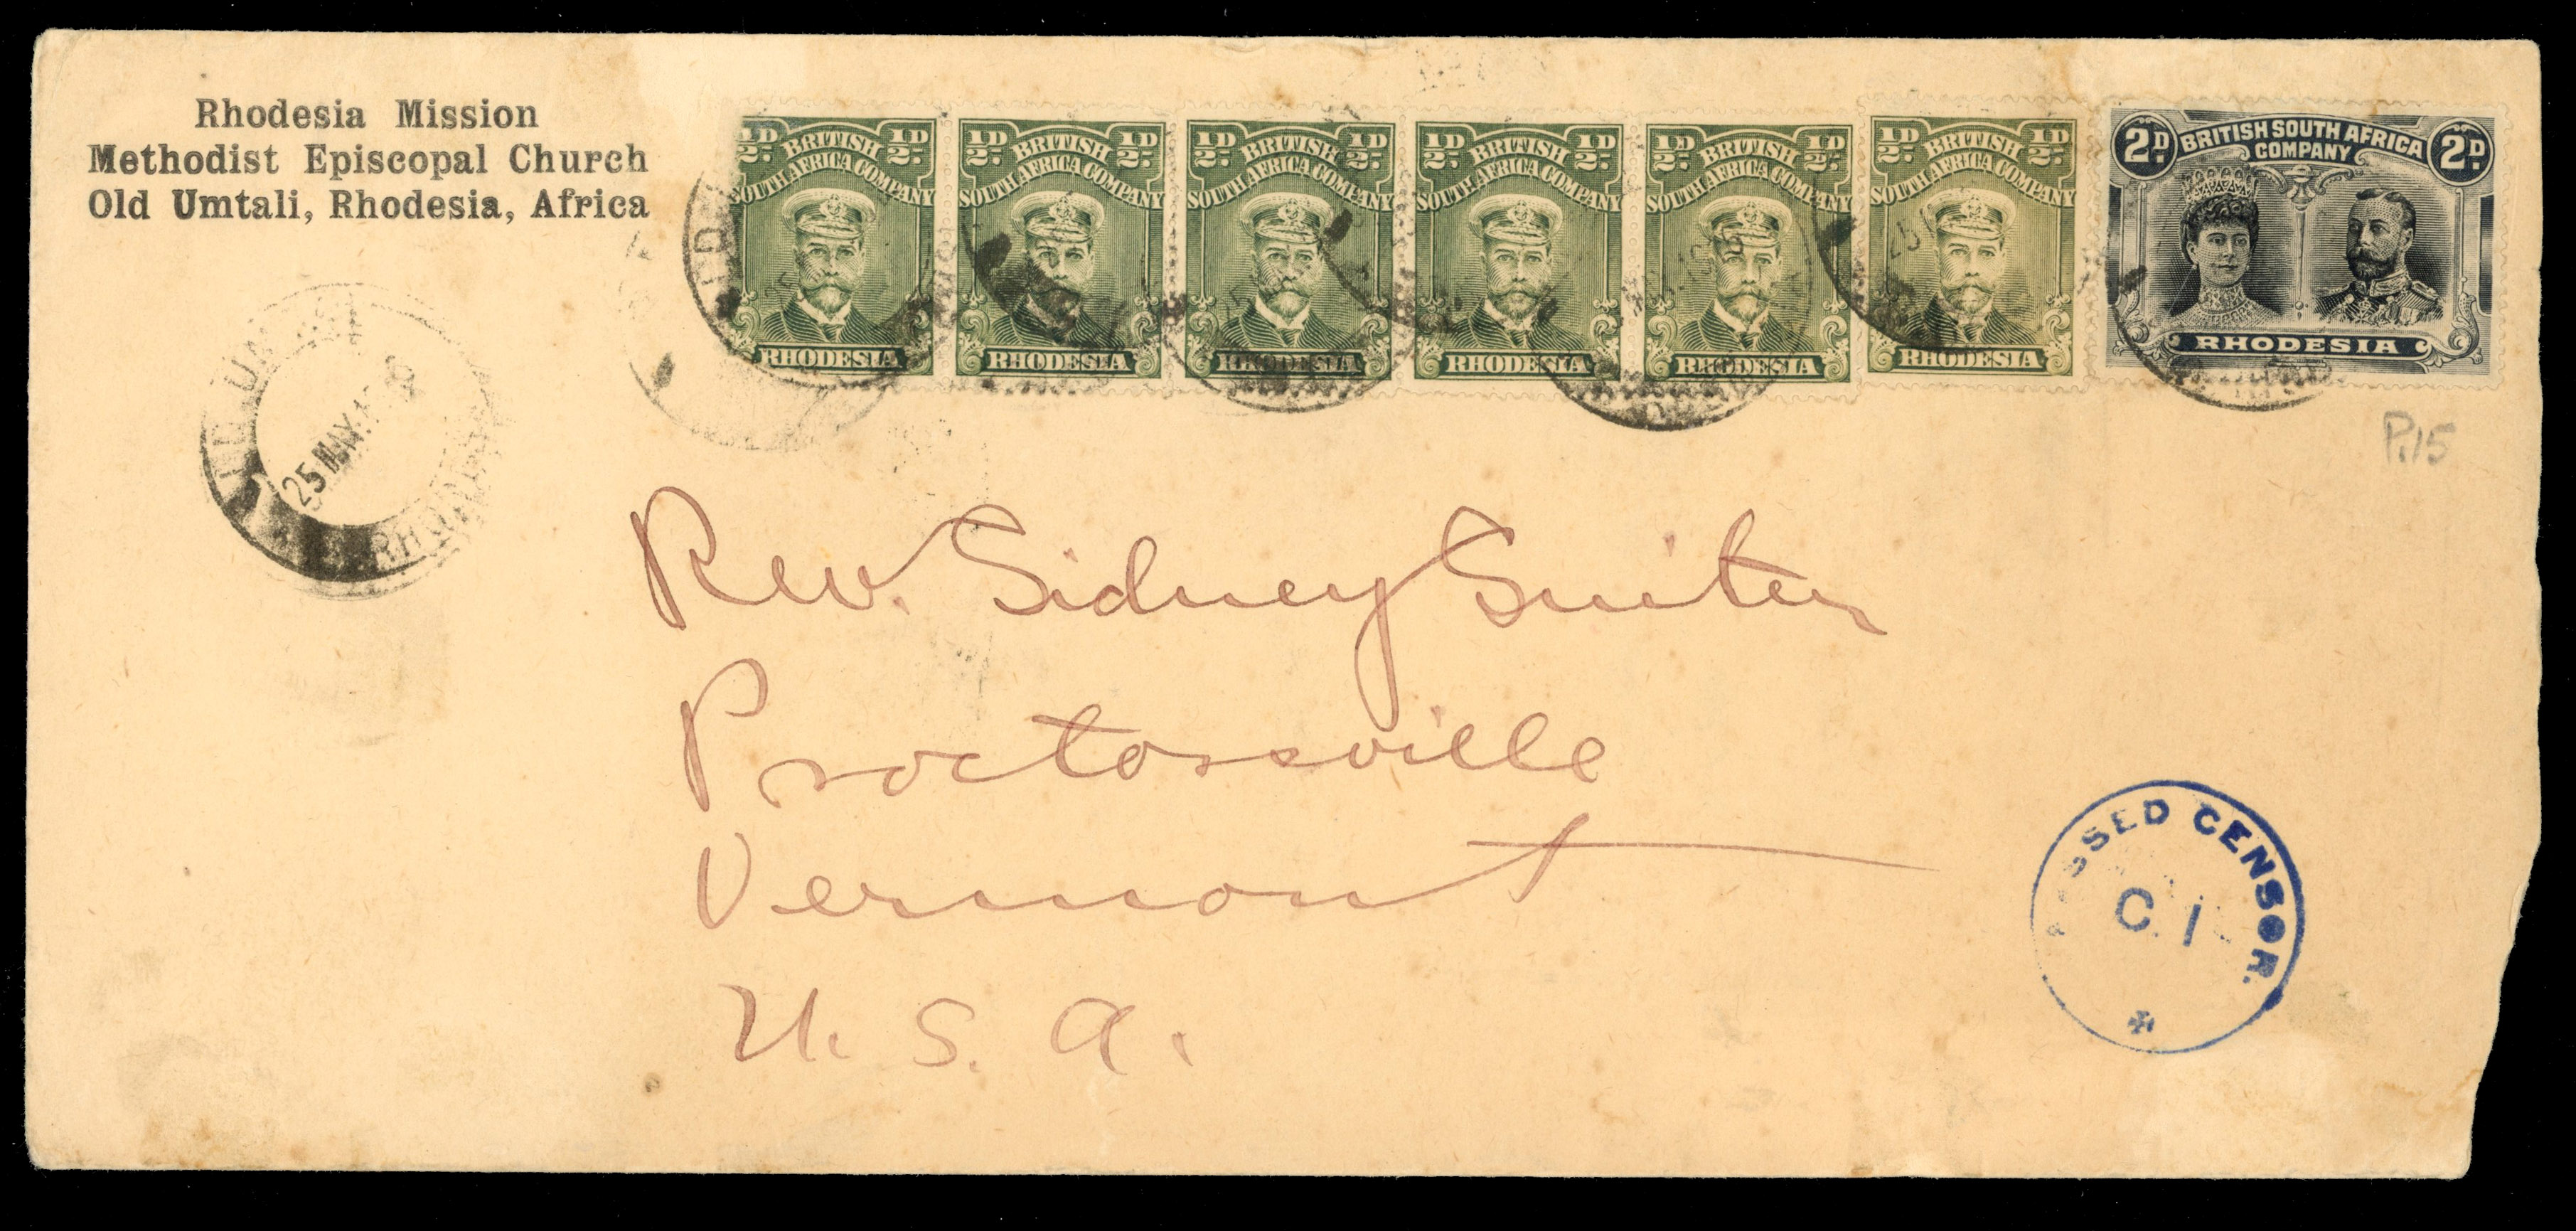 Rhodesia Mission
Methodist Episcopal Church
Old Umtali, Rhodesia, Africa
½D BRITISH ½D
SOUTH AFRICA COMPANY
RHODESIA
½D BRITISH ½D
SOUTH AFRICA COMPANY
RHODESIA
½D BRITISH ½D
SOUTH AFRICA COMPANY
RHODESIA
½D BRITISH ½D
SOUTH AFRICA COMPANY
RHODESIA
½D BRITISH ½D
SOUTH AFRICA COMPANY
RHODESIA
½D BRITISH ½D
SOUTH AFRICA COMPANY
RHODESIA
2D. BRITISH SOUTH AFRICA 2D.
COMPANY
RHODESIA
25 MAY
P.15
Rev. Sidney
Proctorsville
Vermont
U. S. A.
PASSED CENSOR.
C. 1